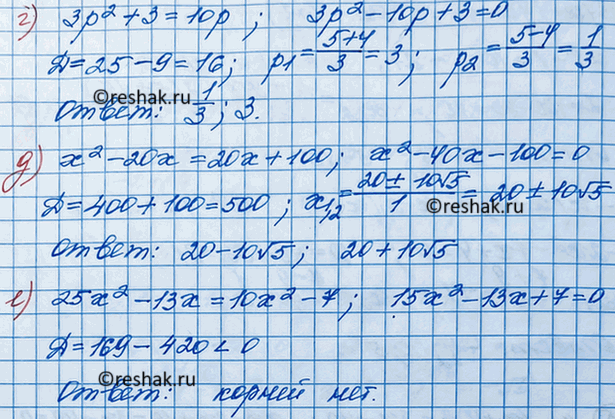 г) 3p² + 3 = 10p ; 3p² - 10p + 3 = 0
Д = 25 - 9 = 16; p1 = (5+4)/3 = 3 ; p2 = (5-4)/3 = 1/3
©reshak.ru
Ответ: 1/3 ; 3.
д) x² - 20x = 20x + 100; x² - 40x - 100 = 0
Д = 400 + 100 = 500 ; x1,2 = (20 ± 10√5)/1 = 20 ± 10√5
©reshak.ru
Ответ: 20 - 10√5 ; 20 + 10√5
е) 25x² - 13x = 10x² - 7 ; 15x² - 13x + 7 = 0
Д = 169 - 420 < 0
©reshak.ru
Ответ: корней нет.